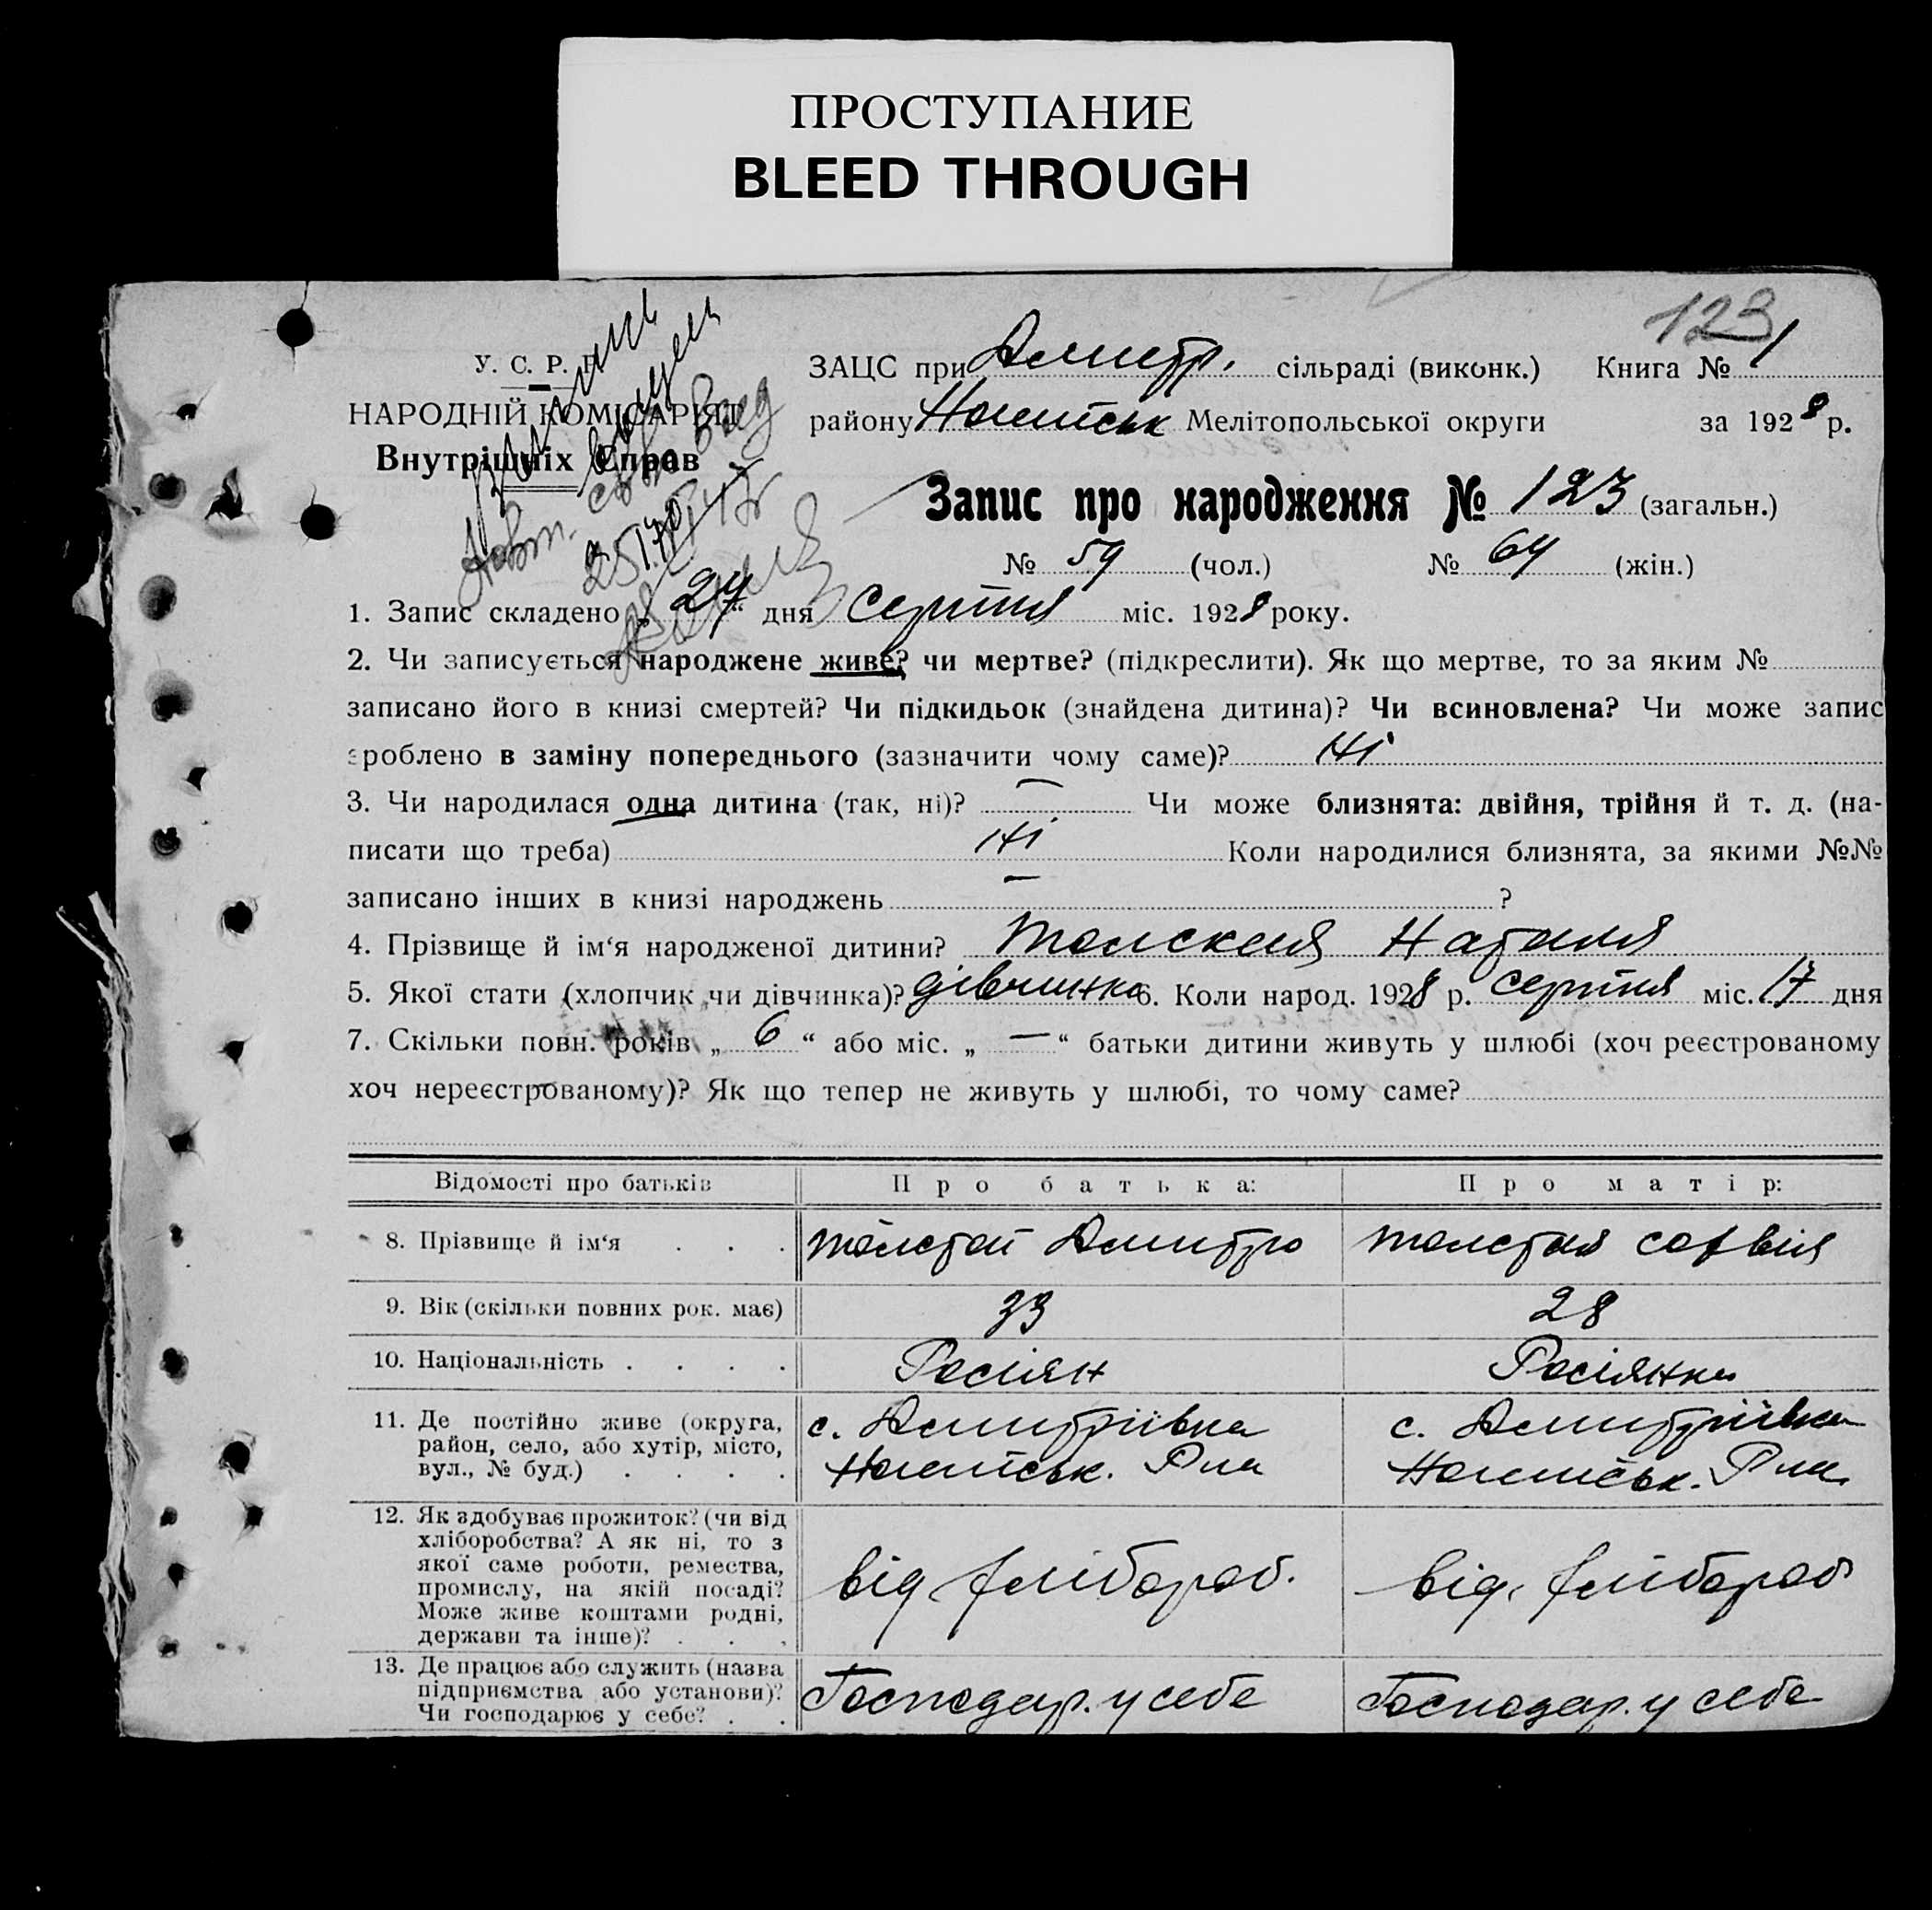 ПРОСТУПАНИЕ
BLEED THROUGH
123
У. С. Р. Р.
НАРОДНІЙ КОМІСАРІЯТ
Внутрішніх Справ
ЗАЦС при Дмитр. сільраді (виконк.) Книга № 1
району Мелітопольської округи за 1928 р.
Запис про народження № 123 (загальн.)
№ 59 (чол.) № 64 (жін.)
1. Запис складено „ 24 “ дня серпня міс. 1928 року.
2. Чи записується народжене живе? чи мертве? (підкреслити). Як що мертве, то за яким №
записано його в книзі смертей? Чи підкидьок (знайдена дитина)? Чи всиновлена? Чи може запис
зроблено в заміну попереднього (зазначити чому саме)? Ні
3. Чи народилася одна дитина (так, ні)? — Чи може близнята: двійня, трійня й т. д. (на-
писати що треба) Ні Коли народилися близнята, за якими №№
записано інших в книзі народжень — ?
4. Прізвище й ім‘я народженої дитини? Наталя
5. Якої стати (хлопчик чи дівчинка)? дівчинка 6. Коли народ. 1928 р. серпня міс. 17 дня
7. Скільки повн. років „ 6 “ або міс. „ — “ батьки дитини живуть у шлюбі (хоч реєстрованому
хоч нереєстрованому)? Як що тепер не живуть у шлюбі, то чому саме?
Відомості про батьків Про батька: Про матір:
8. Прізвище й ім‘я . . . Толстой Дмитро Толстая Софвія
9. Вік (скільки повних рок. має) 33 28
10. Національність . . . . Росіян Росіянка
11. Де постійно живе (округа, с. Дмитріївка с. Дмитріївка
район, село, або хутір, місто,
вул., № буд.) . . . . Р-на Р-на
12. Як здобуває прожиток? (чи від
хліборобства? А як ні, то з
якої саме роботи, ремества,
промислу, на якій посаді? від хлібороб. від. хлібороб
Може живе коштами родні,
держави та інше)? . . .
13. Де працює або служить (назва
підприємства або установи)? Господар. у себе Господар. у себе
Чи господарює у себе? . .